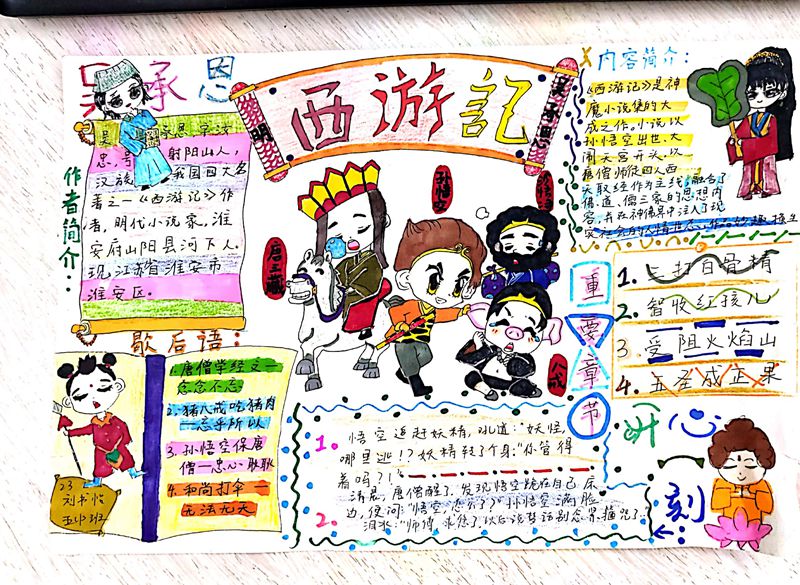 吴承恩
西游記
明
吴承恩
内容简介：
《西游记》是神
魔小说集的大
成之作。小说以
孙悟空出世、大
闹天宫开头，以
唐僧师徒四人西
天取经作为主线，融合了
佛、道、儒三家的思想内
容，
作者简介：
射阳山人，
汉族 我国四大名
者之一《西游记》作
者，明代小说家，淮
安府山阳县河下人
现江苏省淮安市
淮安区。
唐三藏
孙悟空
八戒
重要章节
1. 三打白骨精
2. 智收红孩儿
3. 受阻火焰山
4. 五圣成正果
歇后语：
1. 唐僧学经文一
念念不忘
2. 猪八戒吃猪肉
一忘乎所以
3. 孙悟空保唐
僧一忠心耿耿
4. 和尚打伞一
无法无天
23
刘书怡
开心一刻：
1. 悟空追赶妖精，叫道："妖怪，
哪里逃！？妖精转了个身："你管得
着吗？！"
2. 清晨，唐僧醒了，发现悟空跪在自己床
边，便问："悟空，怎么了？"孙悟空满脸
泪水："师傅，求您了，以后说梦话别念紧箍咒了